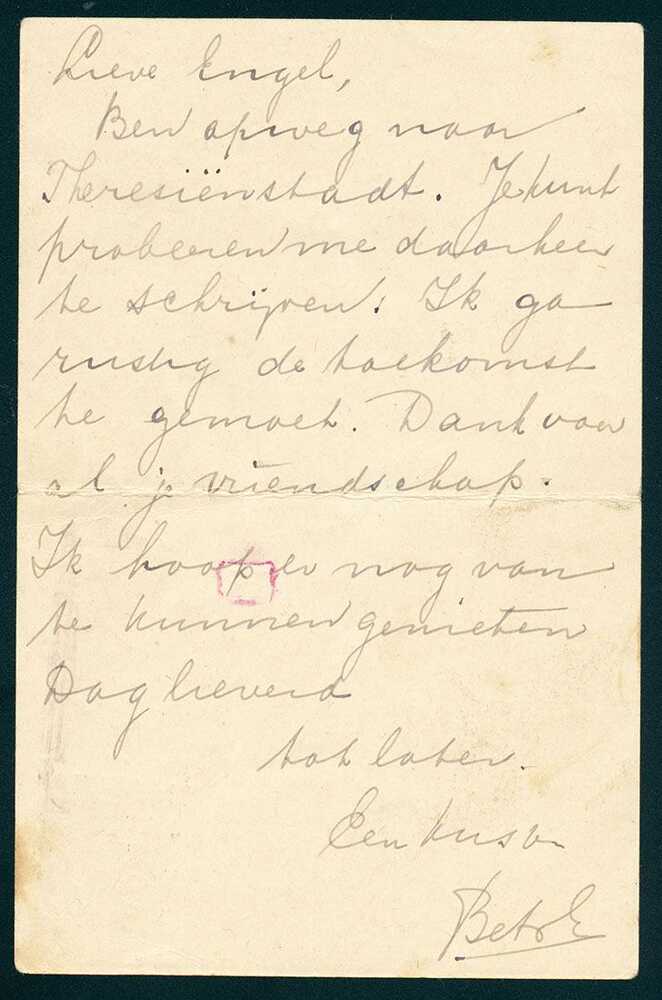 Lieve Engel,
Ben op weg naar
Theresiënstadt. Je kunt
probeeren me daarheen
te schrijven. Ik ga
rustig de toekomst
te gemoet. Dank voor
al je vriendschap.
Ik hoop er nog van
te kunnen genieten
Dag lieverd
tot later.
Een kus v.